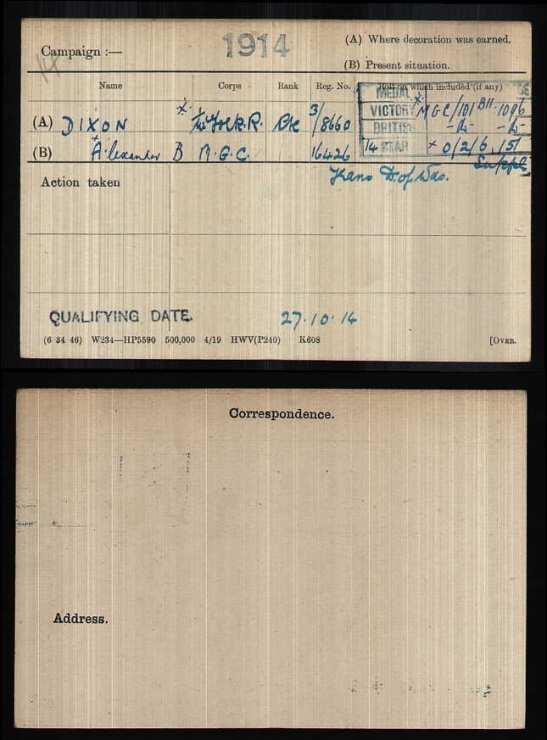 Campaign :—
1914
(A) Where decoration was earned.
(B) Present situation.
Name Corps Rank Reg. No. Roll on which included (if any)
MEDAL
(A) DIXON R. Pte 3/8660 VICTORY MGC/101 B11 1096
BRITISH -do- -do-
(B) Alexander B M.G.C. 16426 14 STAR × 0/2/6 151
Suppl
Action taken
Trans D. of Wds.
QUALIFYING DATE. 27.10.14
(6 34 46) W234—HP5590 500,000 4/19 HWV(P240) K608 [OVER.
Correspondence.
Address.